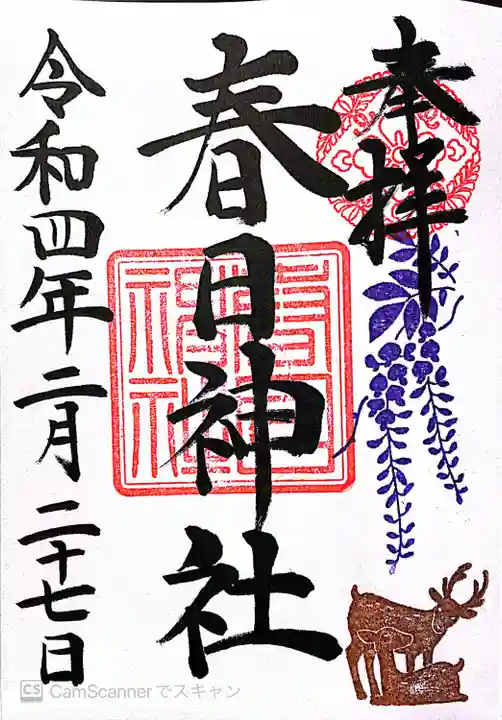 奉拝
春日神社
令和四年二月二十七日
CS CamScannerでスキャン